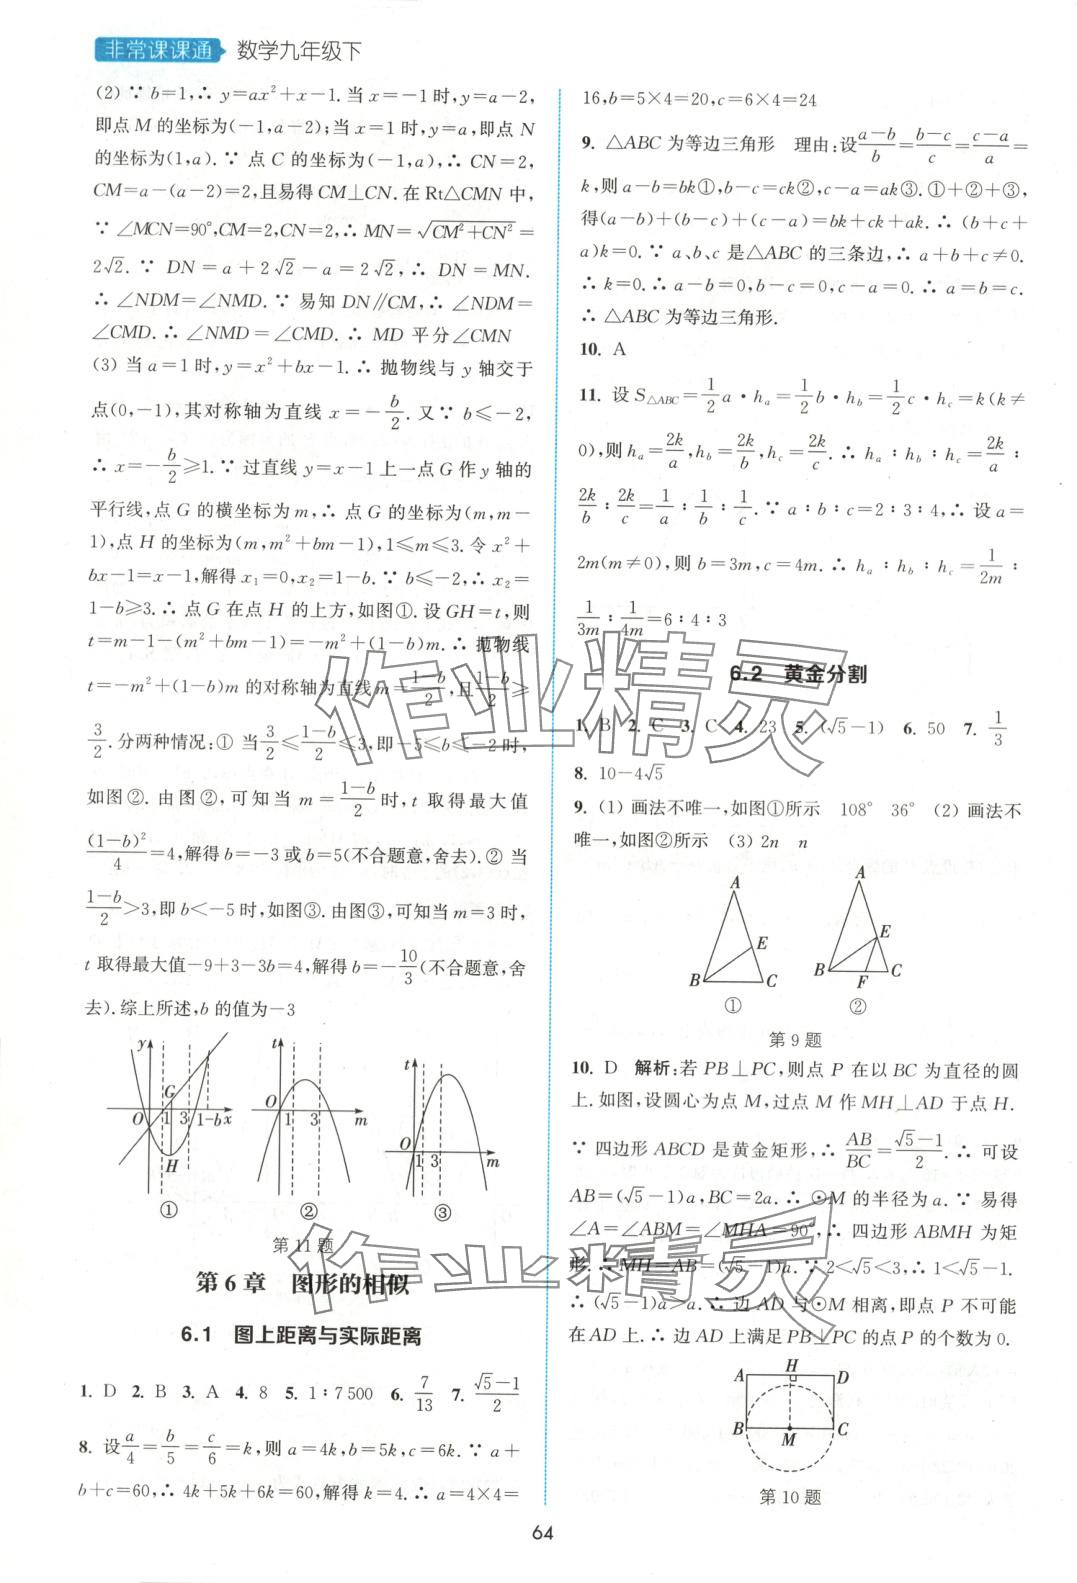 非常课课通 数学九年级下
(2) ∵ b=1,∴ y=ax²+x-1.当 x=-1时,y=a-2,
即点 M 的坐标为(-1,a-2);当 x=1时,y=a,即点 N
的坐标为(1,a).∵ 点 C 的坐标为(-1,a),∴ CN=2,
CM=a-(a-2)=2,且易得 CM⊥CN.在 Rt△CMN 中,
∵ ∠MCN=90°,CM=2,CN=2,∴ MN=√(CM²+CN²)=
2√2. ∵ DN=a+2√2-a=2√2,∴ DN=MN.
∴ ∠NDM=∠NMD. ∵ 易知 DN∥CM,∴ ∠NDM=
∠CMD. ∴ ∠NMD=∠CMD. ∴ MD 平分∠CMN
(3) 当 a=1时,y=x²+bx-1.∴ 抛物线与 y 轴交于
点(0,-1),其对称轴为直线 x=-b/2.又∵ b≤-2,
∴ x=-b/2≥1.∵ 过直线 y=x-1上一点 G 作 y 轴的
平行线,点 G 的横坐标为 m,∴ 点 G 的坐标为(m,m-
1),点 H 的坐标为(m,m²+bm-1),1≤m≤3.令 x²+
bx-1=x-1,解得 x₁=0,x₂=1-b.∵ b≤-2,∴ x₂=
1-b≥3.∴ 点 G 在点 H 的上方,如图①.设 GH=t,则
t=m-1-(m²+bm-1)=-m²+(1-b)m.∴ 抛物线
t=-m²+(1-b)m 的对称轴为直线 m=(1-b)/2,且(1-b)/2≥
3/2.分两种情况:① 当3/2≤(1-b)/2≤3,即-5≤b≤-2时,
如图②.由图②,可知当 m=(1-b)/2时,t 取得最大值
(1-b)²/4=4,解得 b=-3或 b=5(不合题意,舍去).② 当
(1-b)/2>3,即 b<-5时,如图③.由图③,可知当 m=3时,
t 取得最大值-9+3-3b=4,解得 b=-10/3(不合题意,舍
去).综上所述,b 的值为-3
y G O 1 3 1-b x H ①
t O 1 3 m ②
t O 1 3 m ③
第11题
第6章 图形的相似
6.1 图上距离与实际距离
1. D 2. B 3. A 4. 8 5. 1∶7500 6. 7/13 7. (√5-1)/2
8. 设a/4=b/5=c/6=k,则 a=4k,b=5k,c=6k.∵ a+
b+c=60,∴ 4k+5k+6k=60,解得 k=4.∴ a=4×4=
16,b=5×4=20,c=6×4=24
9. △ABC 为等边三角形 理由:设(a-b)/b=(b-c)/c=(c-a)/a=
k,则 a-b=bk①,b-c=ck②,c-a=ak③.①+②+③,
得(a-b)+(b-c)+(c-a)=bk+ck+ak.∴ (b+c+
a)k=0.∵ a、b、c 是△ABC 的三条边,∴ a+b+c≠0.
∴ k=0.∴ a-b=0,b-c=0,c-a=0.∴ a=b=c.
∴ △ABC 为等边三角形.
10. A
11. 设 S△ABC=1/2a·hₐ=1/2b·h_b=1/2c·h_c=k(k≠
0),则 hₐ=2k/a,h_b=2k/b,h_c=2k/c.∴ hₐ∶h_b∶h_c=2k/a∶
2k/b∶2k/c=1/a∶1/b∶1/c.∵ a∶b∶c=2∶3∶4,∴ 设 a=
2m(m≠0),则 b=3m,c=4m.∴ hₐ∶h_b∶h_c=1/2m∶
1/3m∶1/4m=6∶4∶3
6.2 黄金分割
1. B 2. C 3. C 4. 23 5. (√5-1) 6. 50 7. 1/3
8. 10-4√5
9. (1) 画法不唯一,如图①所示 108° 36° (2) 画法不
唯一,如图②所示 (3) 2n n
A E B C ①
A E B F C ②
第9题
10. D 解析:若 PB⊥PC,则点 P 在以 BC 为直径的圆
上.如图,设圆心为点 M,过点 M 作 MH⊥AD 于点 H.
∵ 四边形 ABCD 是黄金矩形,∴ AB/BC=(√5-1)/2.∴ 可设
AB=(√5-1)a,BC=2a.∴ ⊙M 的半径为 a.∵ 易得
∠A=∠ABM=∠MHA=90°,∴ 四边形 ABMH 为矩
形.∴ MH=AB=(√5-1)a.∵ 2<√5<3,∴ 1<√5-1.
∴ (√5-1)a>a.∴ 边 AD 与⊙M 相离,即点 P 不可能
在 AD 上.∴ 边 AD 上满足 PB⊥PC 的点 P 的个数为 0.
A H D
B M C
第10题
64
作业精灵
作业精灵